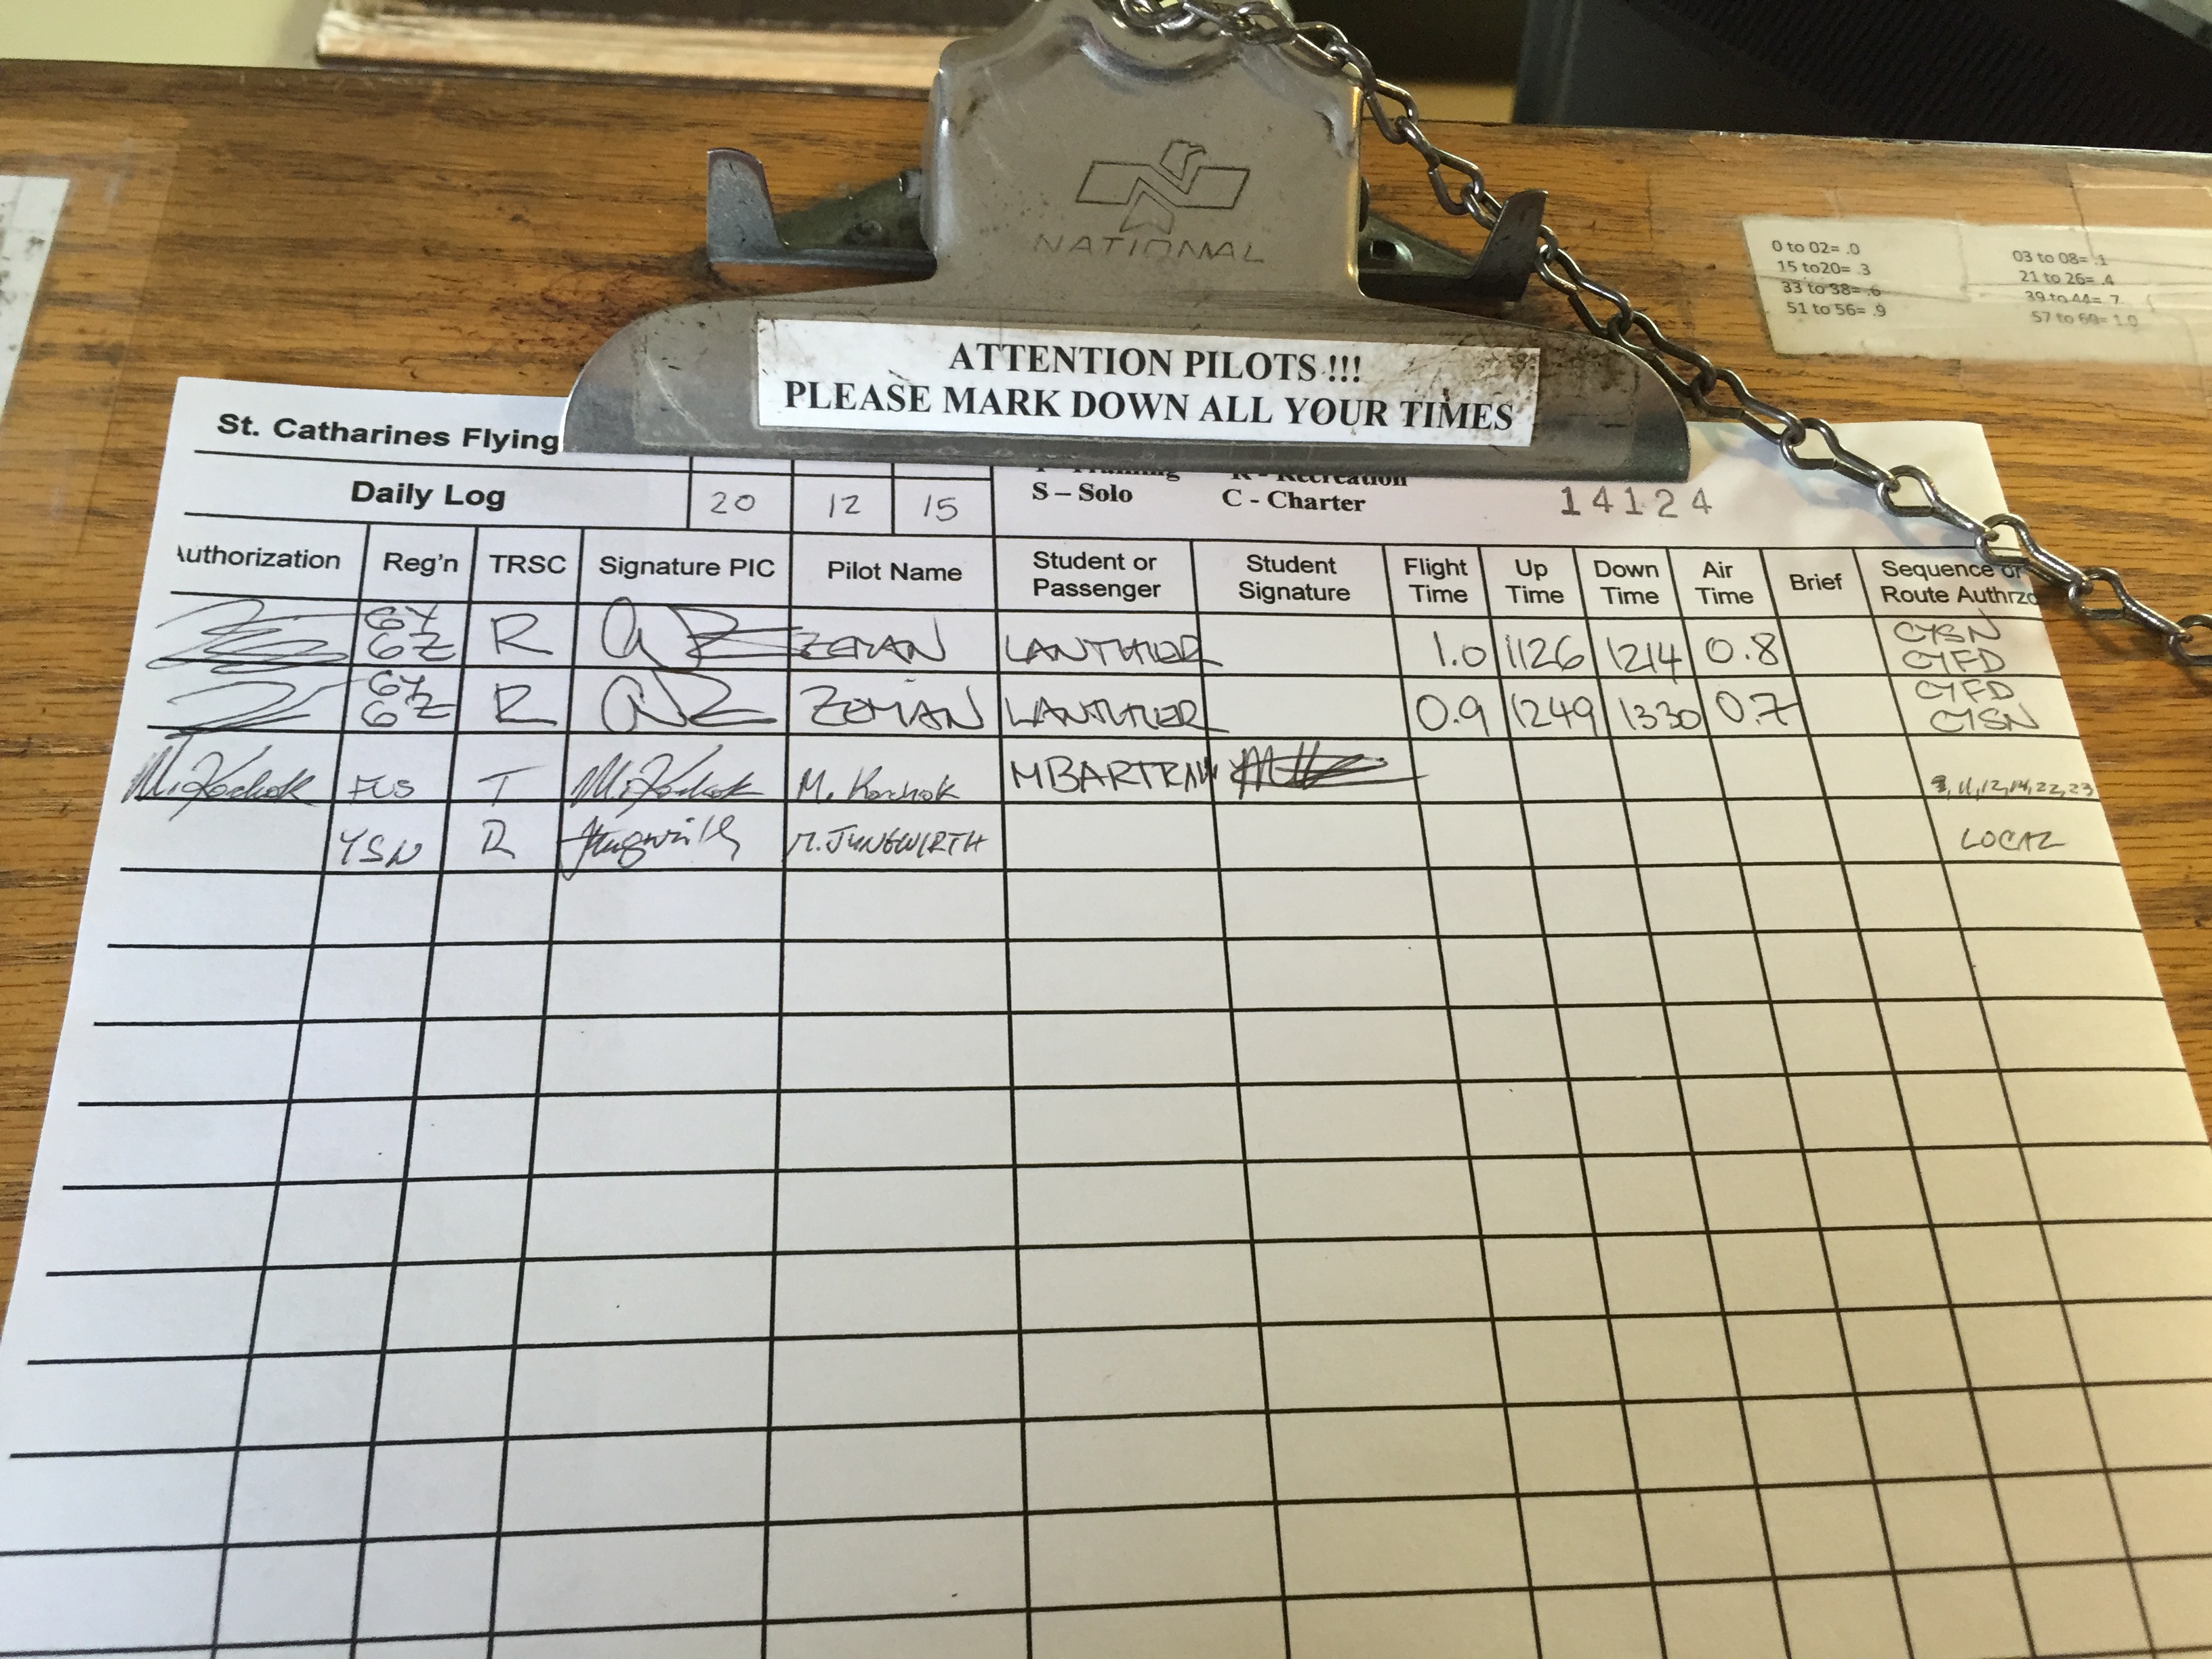 NATIONAL
0 to 02= .0 03 to 08= .1
15 to20= .3 21 to 26= .4
33 to 38= .6 39 to 44= .7
51 to 56= .9 57 to 60= 1.0
ATTENTION PILOTS !!!
PLEASE MARK DOWN ALL YOUR TIMES
St. Catharines Flying
R - Recreation
Daily Log 20 12 15 S – Solo C - Charter 14124
Authorization Reg'n TRSC Signature PIC Pilot Name Student or Passenger Student Signature Flight Time Up Time Down Time Air Time Brief Sequence or Route Authrzo
R ZEMAN LANTHIER 1.0 1126 1214 0.8 CYSN CYFD
R ZEMAN LANTHIER 0.9 1249 1330 0.7 CYFD CYSN
T M. Korchok MBARTRAM 11,12,14,22,23
YSN R M. JUNGWIRTH LOCAL